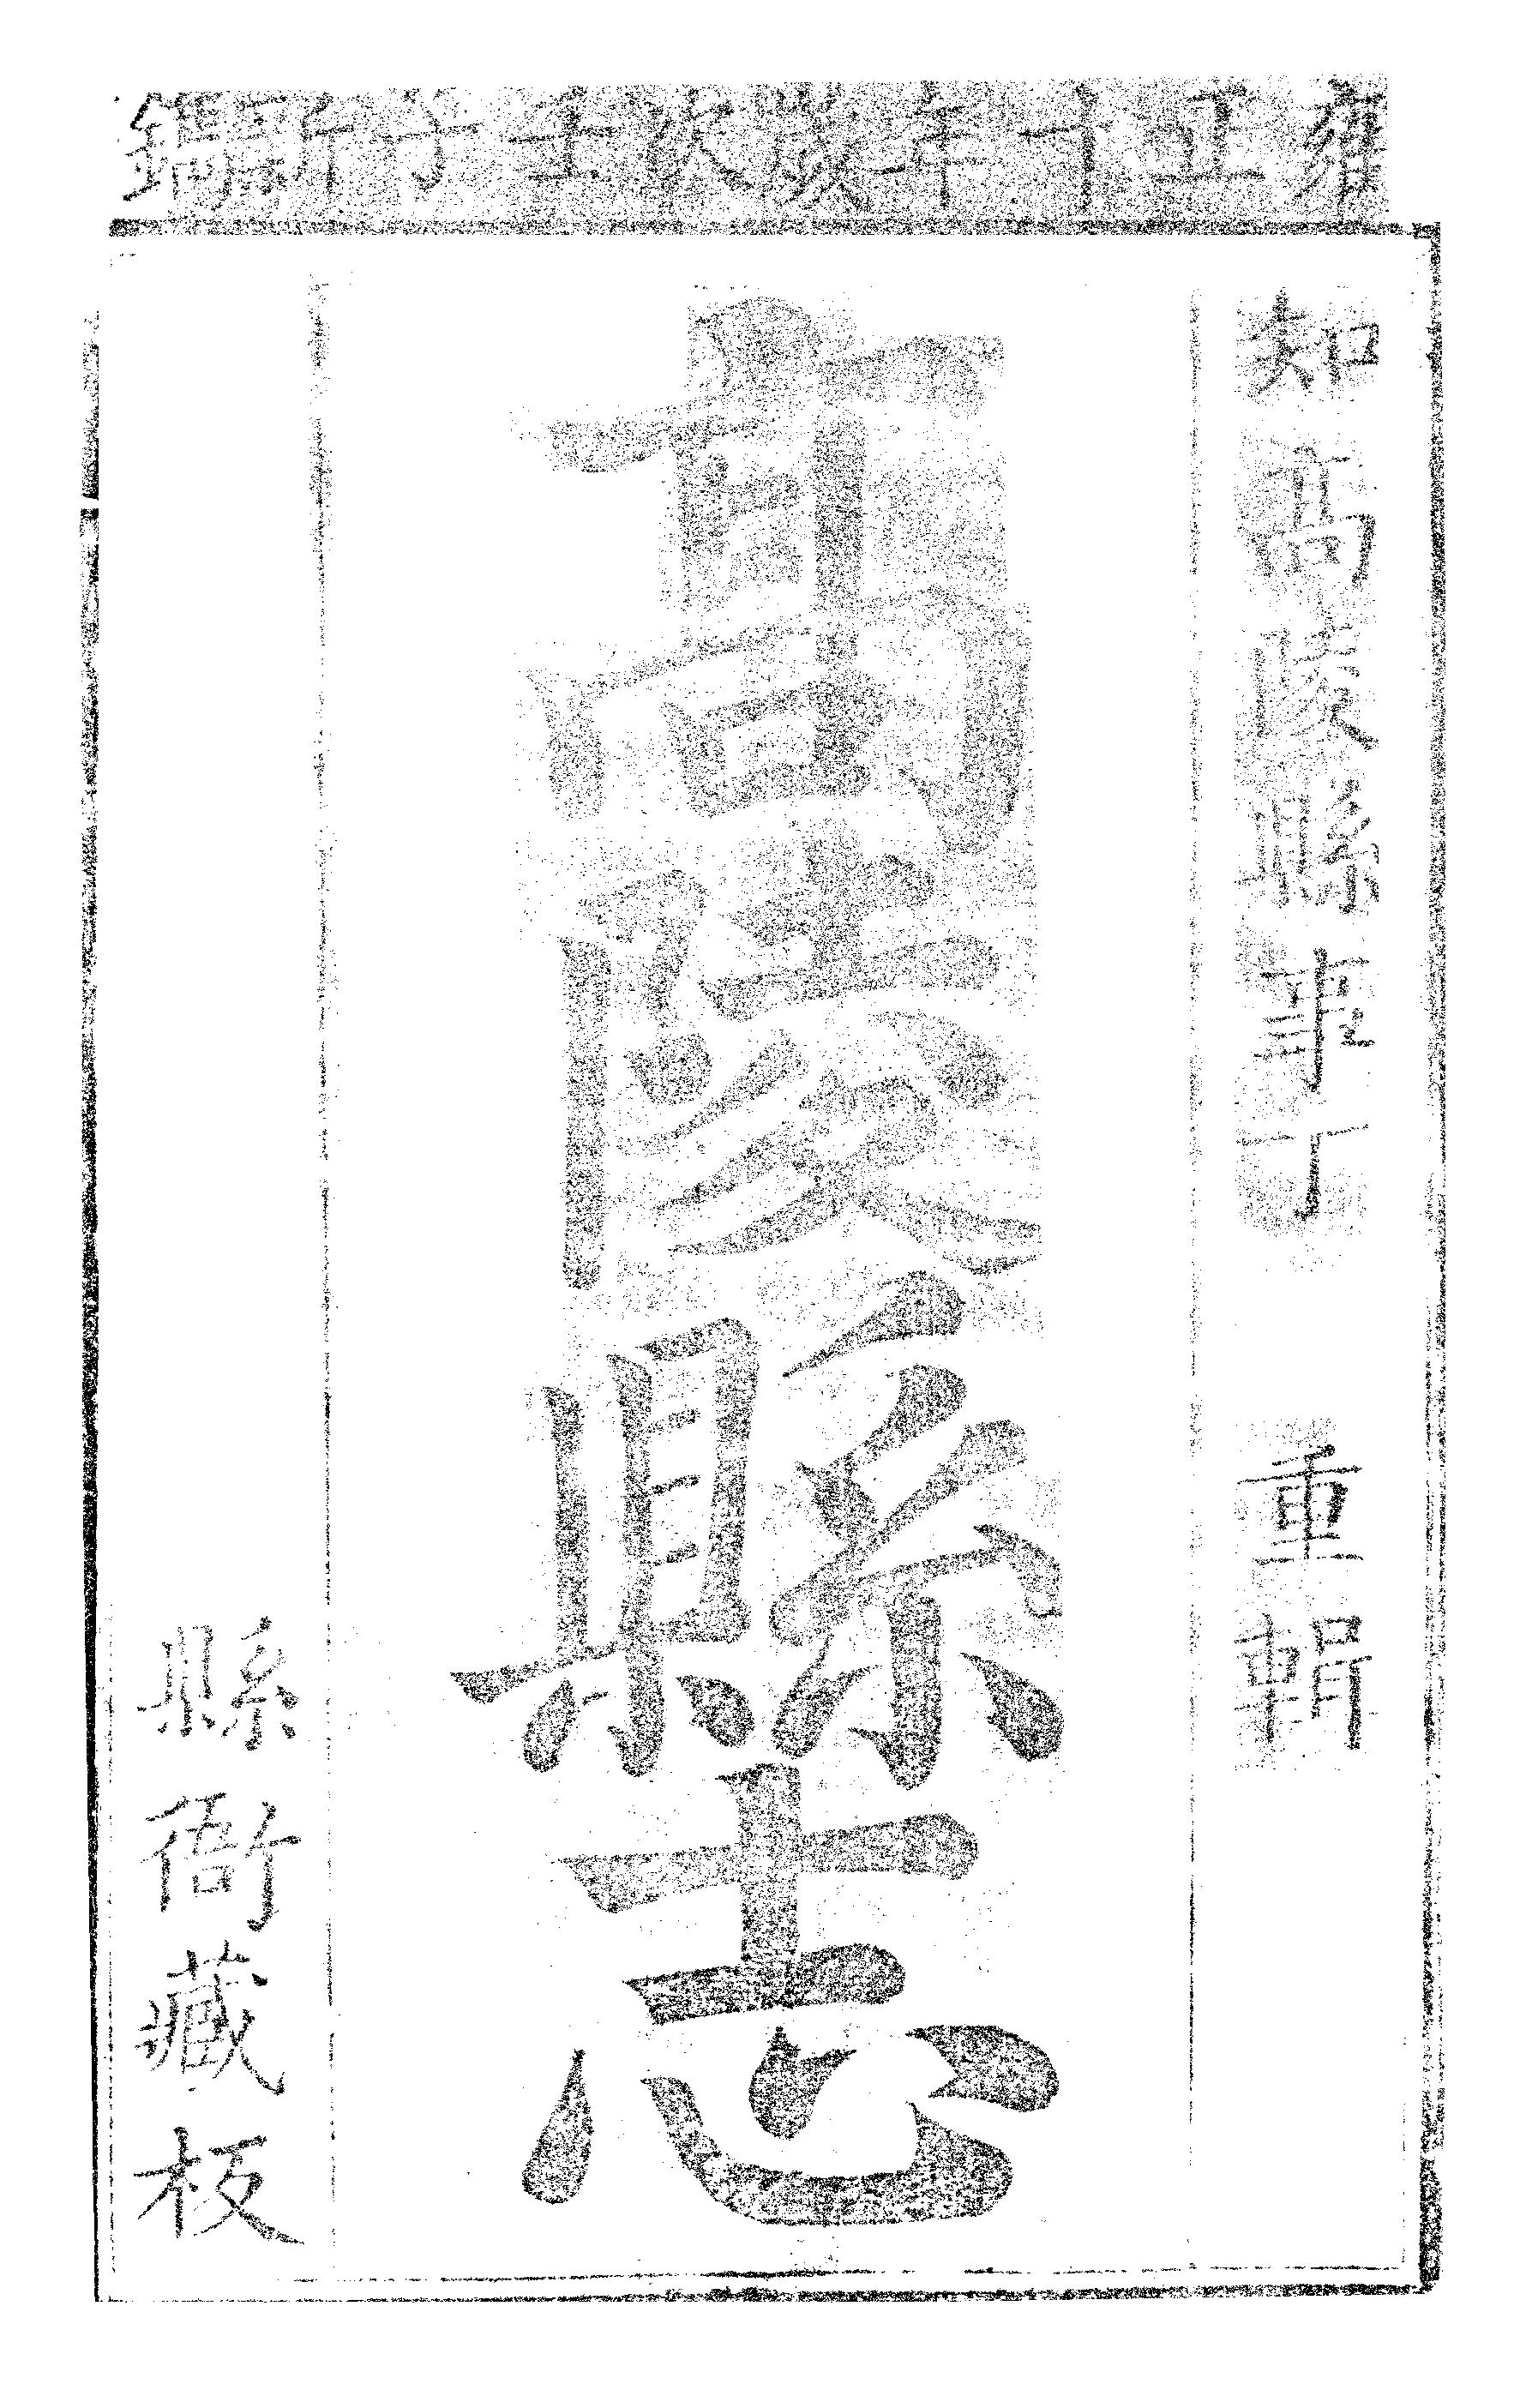 雍正十年歲次壬子新鐫
知高陵縣事丁　重輯
高陵縣志
縣衙藏板